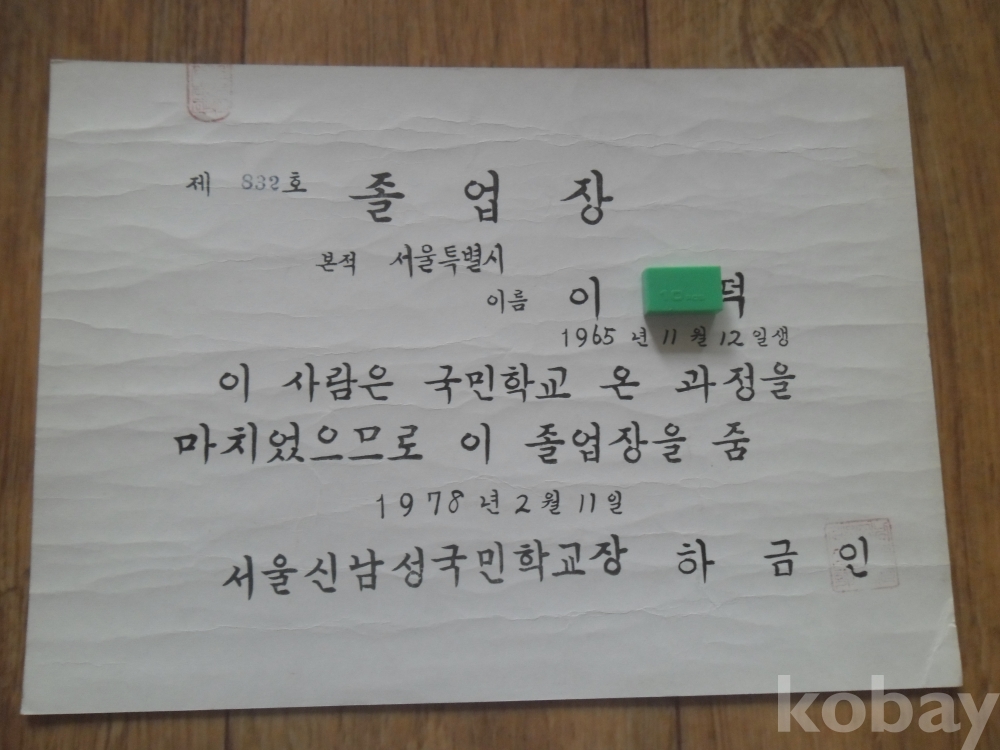 제 832호 졸업장
본적 서울특별시
이름 이 덕
1965년 11월 12일생
이 사람은 국민학교 온 과정을
마치었으므로 이 졸업장을 줌
1978년 2월 11일
서울신남성국민학교장 하금인
kobay